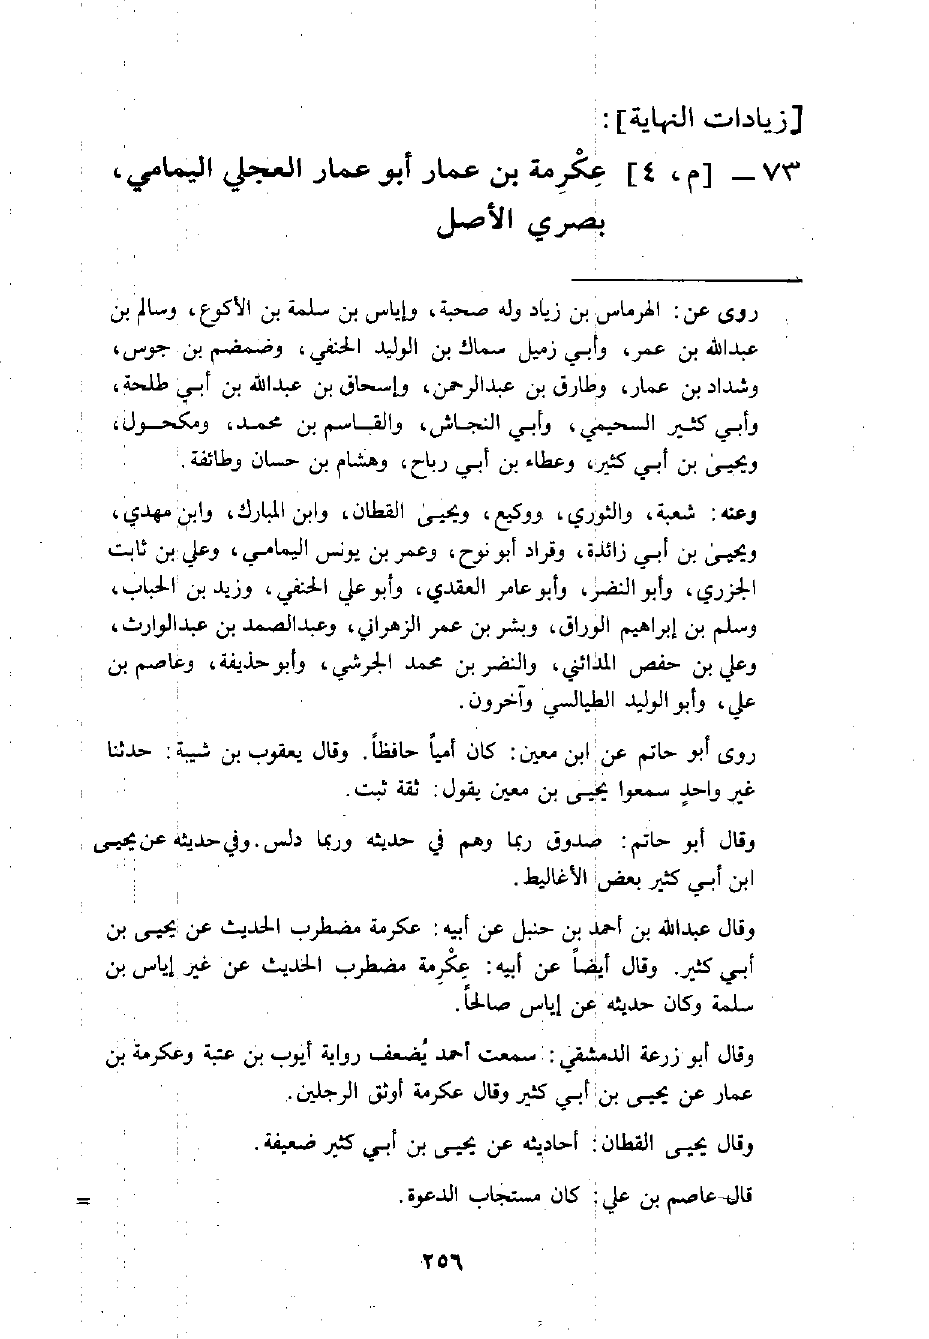 [زيادات النهاية]:
٧٣ – [م، ٤] عِكْرِمة بن عمار أبو عمار العجلي اليمامي،
بصري الأصل
روى عن: الهرماس بن زياد وله صحبة، وإياس بن سلمة بن الأكوع، وسالم بن
عبدالله بن عمر، وأبي زميل سماك بن الوليد الحنفي، وضمضم بن جوس،
وشداد بن عمار، وطارق بن عبدالرحمن، وإسحاق بن عبدالله بن أبي طلحة،
وأبي كثير السحيمي، وأبي النجاش، والقاسم بن محمد، ومكحول،
ويحيىٰ بن أبي كثير، وعطاء بن أبي رباح، وهشام بن حسان وطائفة.
وعنه: شعبة، والثوري، ووكيع، ويحيىٰ القطان، وابن المبارك، وابن مهدي،
ويحيىٰ بن أبي زائدة، وقراد أبو نوح، وعمر بن يونس اليمامي، وعلي بن ثابت
الجزري، وأبو النضر، وأبو عامر العقدي، وأبو علي الحنفي، وزيد بن الحباب،
وسلم بن إبراهيم الوراق، وبشر بن عمر الزهراني، وعبدالصمد بن عبدالوارث،
وعلي بن حفص المدائني، والنضر بن محمد الجرشي، وأبو حذيفة، وعاصم بن
علي، وأبو الوليد الطيالسي وآخرون.
روى أبو حاتم عن ابن معين: كان أمياً حافظاً. وقال يعقوب بن شيبة: حدثنا
غير واحدٍ سمعوا يحيى بن معين يقول: ثقة ثبت.
وقال أبو حاتم: صدوق ربما وهم في حديثه وربما دلس. وفي حديثه عن يحيى
ابن أبي كثير بعض الأغاليط.
وقال عبدالله بن أحمد بن حنبل عن أبيه: عكرمة مضطرب الحديث عن يحيى بن
أبي كثير. وقال أيضاً عن أبيه: عِكْرِمة مضطرب الحديث عن غير إياس بن
سلمة وكان حديثه عن إياس صالحاً.
وقال أبو زرعة الدمشقي: سمعت أحمد يُضعف رواية أيوب بن عتبة وعكرمة بن
عمار عن يحيى بن أبي كثير وقال عكرمة أوثق الرجلين.
وقال يحيى القطان: أحاديثه عن يحيى بن أبي كثير ضعيفة.
قال عاصم بن علي: كان مستجاب الدعوة. =
٢٥٦